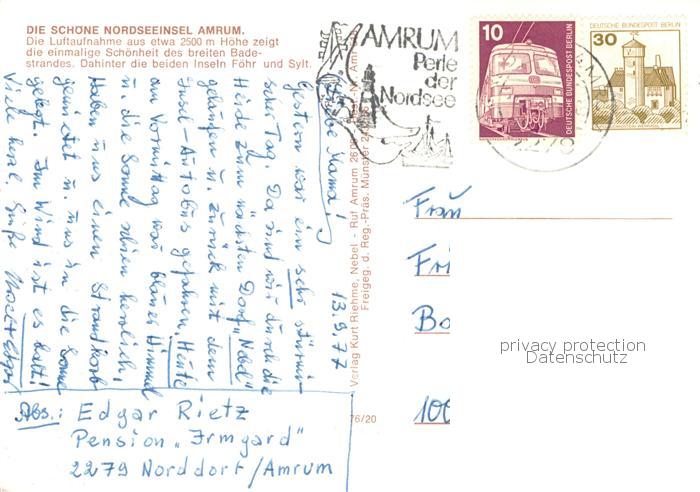 DIE SCHÖNE NORDSEEINSEL AMRUM.
Die Luftaufnahme aus etwa 2500 m Höhe zeigt
die einmalige Schönheit des breiten Bade-
strandes. Dahinter die beiden Inseln Föhr und Sylt.
AMRUM
Perle
der
Nordsee
10
DEUTSCHE BUNDESPOST BERLIN
DEUTSCHE BUNDESPOST BERLIN
30
2279
13.9.77
Liebe Mama!
Gestern war ein sehr stürmi-
scher Tag. Da sind wir durch die
Heide zum nächsten Dorf „Nebel"
gelaufen u. zurück mit dem
Insel-Autobus gefahren. Heute
am Vormittag war blauer Himmel
u. die Sonne schien herrlich.
Haben uns einen Strandkorb
gemietet u. uns in die Sonne
gelegt. Im Wind ist es kalt!
Viele herzl. Grüße
Verlag Kurt Riehme, Nebel - Ruf Amrum
Freigeg. d. Reg.-Präs. Münster
76/20
Abs.: Edgar Rietz
Pension „Irmgard"
2279 Norddorf/Amrum
Frau
Fri
Bo
100
privacy protection
Datenschutz